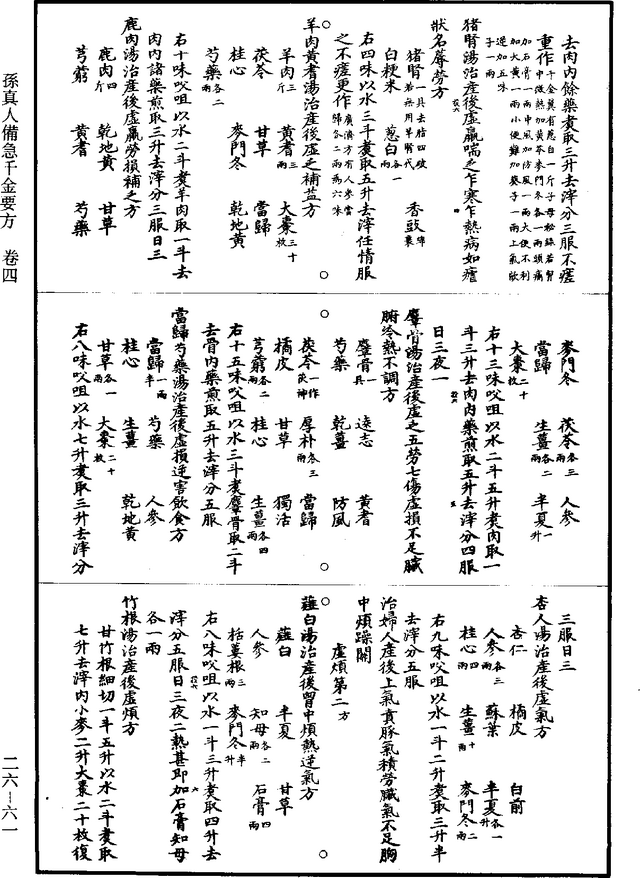 去肉內餘藥煮取三升去滓分三服不瘥
重作千金翼有蔥白一斤子母秘錄若胷
中微熱加黃芩麥門冬各一兩頭痛
加石膏一兩中風加防風一兩大便不利
加大黃一兩小便難加葵子一兩上氣欬
逆加五味
子一兩
猪腎湯治產後虛羸喘乏乍寒乍熱病如瘧
狀名蓐勞方
猪腎一具去脂四破
若無用羊腎代 香豉綿
裹
白粳米 蔥白各一
斗
右四味以水三斗煮取五升去滓任情服
之不瘥更作廣濟方有人參當
歸各二兩為六味
羊肉黃耆湯治產後虛乏補益方
羊肉三
斤 黃耆三
兩 大棗三十
枚
茯苓 甘草 當歸
桂心 麥門冬 乾地黃
芍藥各二
兩
右十味㕮咀以水二斗煮羊肉取一斗去
肉內諸藥煎取三升去滓分三服日三
鹿肉湯治產後虛羸勞損補乏方
鹿肉四
斤 乾地黃 甘草
芎藭 黃耆 芍藥
麥門冬 茯苓各三
兩 人參
當歸 生薑各二
兩 半夏一
升
大棗二十
枚
右十三味㕮咀以水二斗五升煮肉取一
斗三升去肉內藥煎取五升去滓分四服
日三夜一
麞骨湯治產後虛乏五勞七傷虛損不足臟
腑冷熱不調方
麞骨一
具 遠志 黃耆
芍藥 乾薑 防風
茯苓一作
茯神 厚朴各三
兩 當歸
橘皮 甘草 獨活
芎藭各二
兩 桂心 生薑各四
兩
右十五味㕮咀以水三斗煮麞骨取二斗
去骨內藥煎取五升去滓分五服
當歸芍藥湯治產後虛損逆害飲食方
當歸一兩
半 芍藥 人參
桂心 生薑 乾地黃
甘草各一
兩 大棗二十
枚
右八味㕮咀以水七升煮取三升去滓分
三服日三
杏人湯治產後虛氣方
杏仁 橘皮 白前
人參各三
兩 蘇葉 半夏各一
升
桂心四
兩 生薑十
兩 麥門冬二
兩
右九味㕮咀以水一斗二升煮取三升半
去滓分五服
治婦人產後上氣賁豚氣積勞臟氣不足胸
中煩躁關
虛煩第二方
薤白湯治產後胷中煩熱逆氣方
薤白 半夏 甘草
人參 知母各二
兩 石膏四
兩
栝蔞根三
兩 麥門冬半
升
右八味㕮咀以水一斗三升煮取四升去
滓分五服日三夜二熱甚即加石膏知母
各一兩
竹根湯治產後虛煩方
甘竹根細切一斗五升以水二斗煮取
七升去滓內小麥二升大棗二十枚復
孫真人備急千金要方 卷四
二六—六一